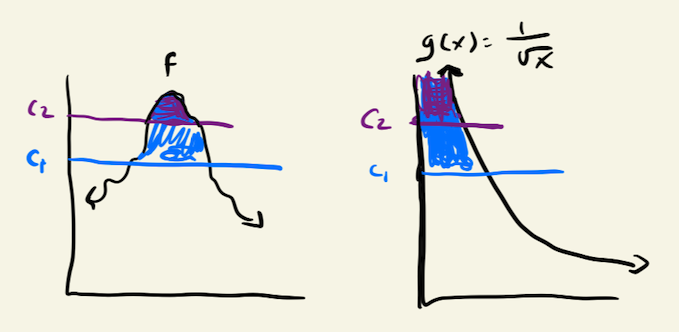 f
C₂
C₁
g(x) = 1/√x
C₂
C₁